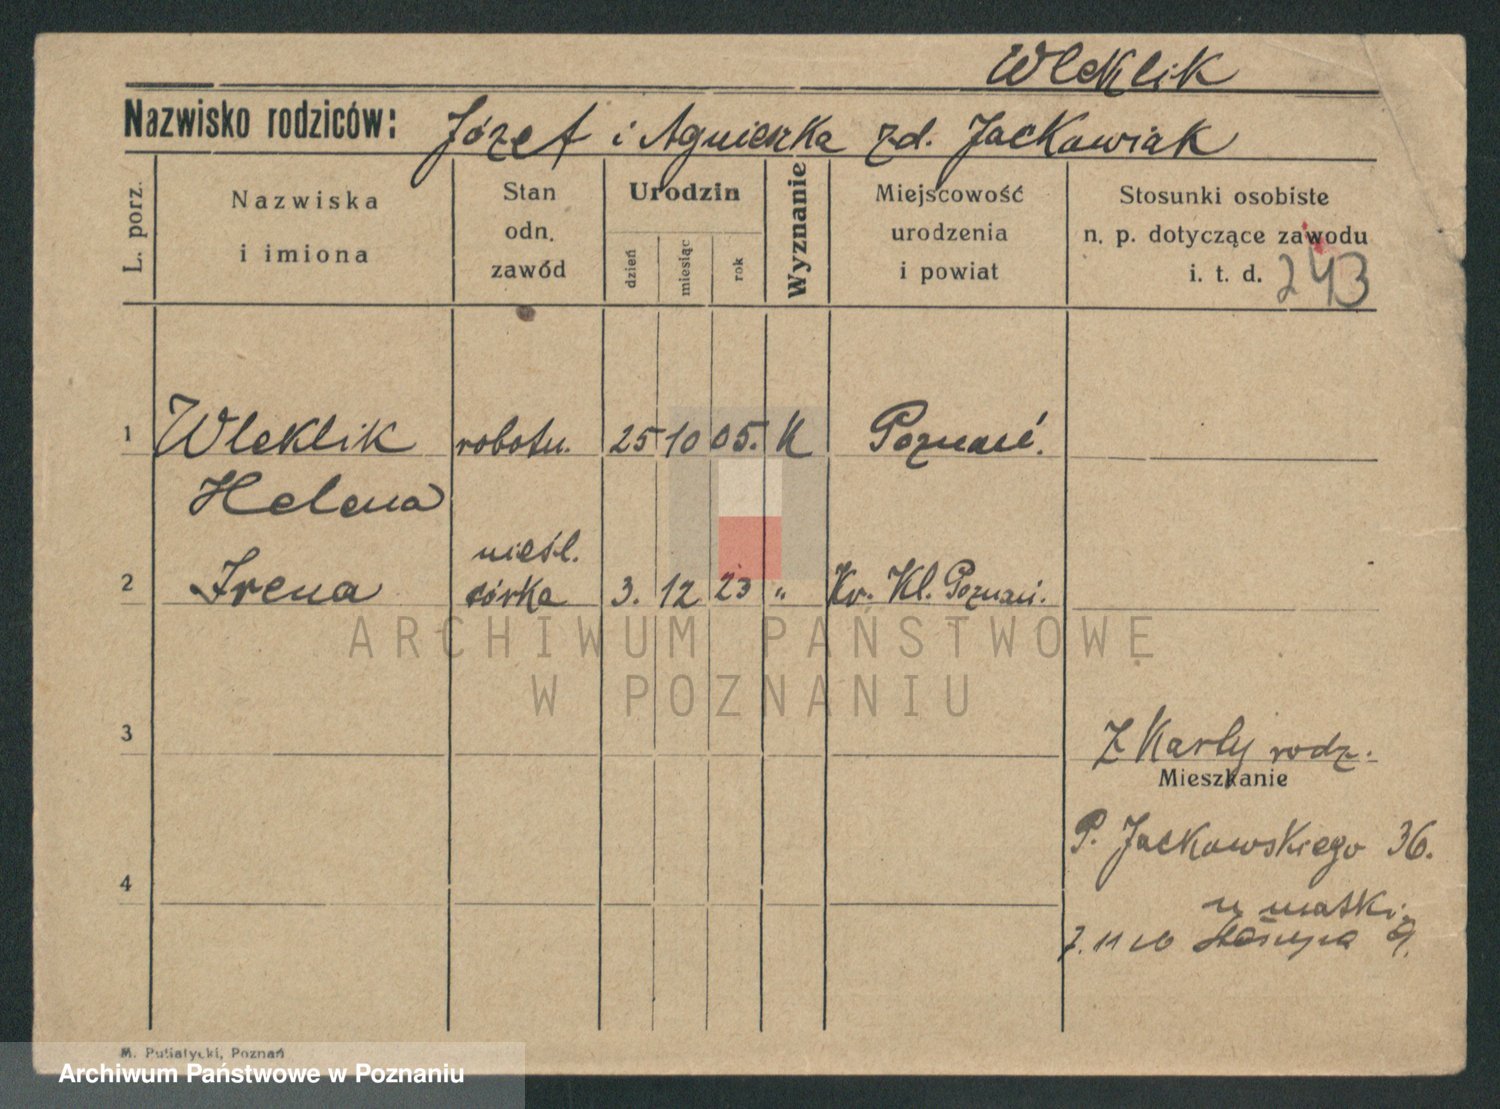 Wleklik
Nazwisko rodziców: Józef i Agnieszka zd. Jackowiak
L. porz.
Nazwiska
i imiona
Stan
odn.
zawód
Urodzin
dzień
miesiąc
rok
Wyznanie
Miejscowość
urodzenia
i powiat
Stosunki osobiste
n. p. dotyczące zawodu
i. t. d. 243
1 Wleklik robotn. 25 10 05. K Poznań.
Helena
nieśl.
2 Irena córka 3. 12 23 " Kr. Kl. Poznań.
ARCHIWUM PAŃSTWOWE
W POZNANIU
3
Z Karty rodz.
Mieszkanie
P. Jackowskiego 36.
4
u matki.
7. 11
M. Putiatycki, Poznań
Archiwum Państwowe w Poznaniu